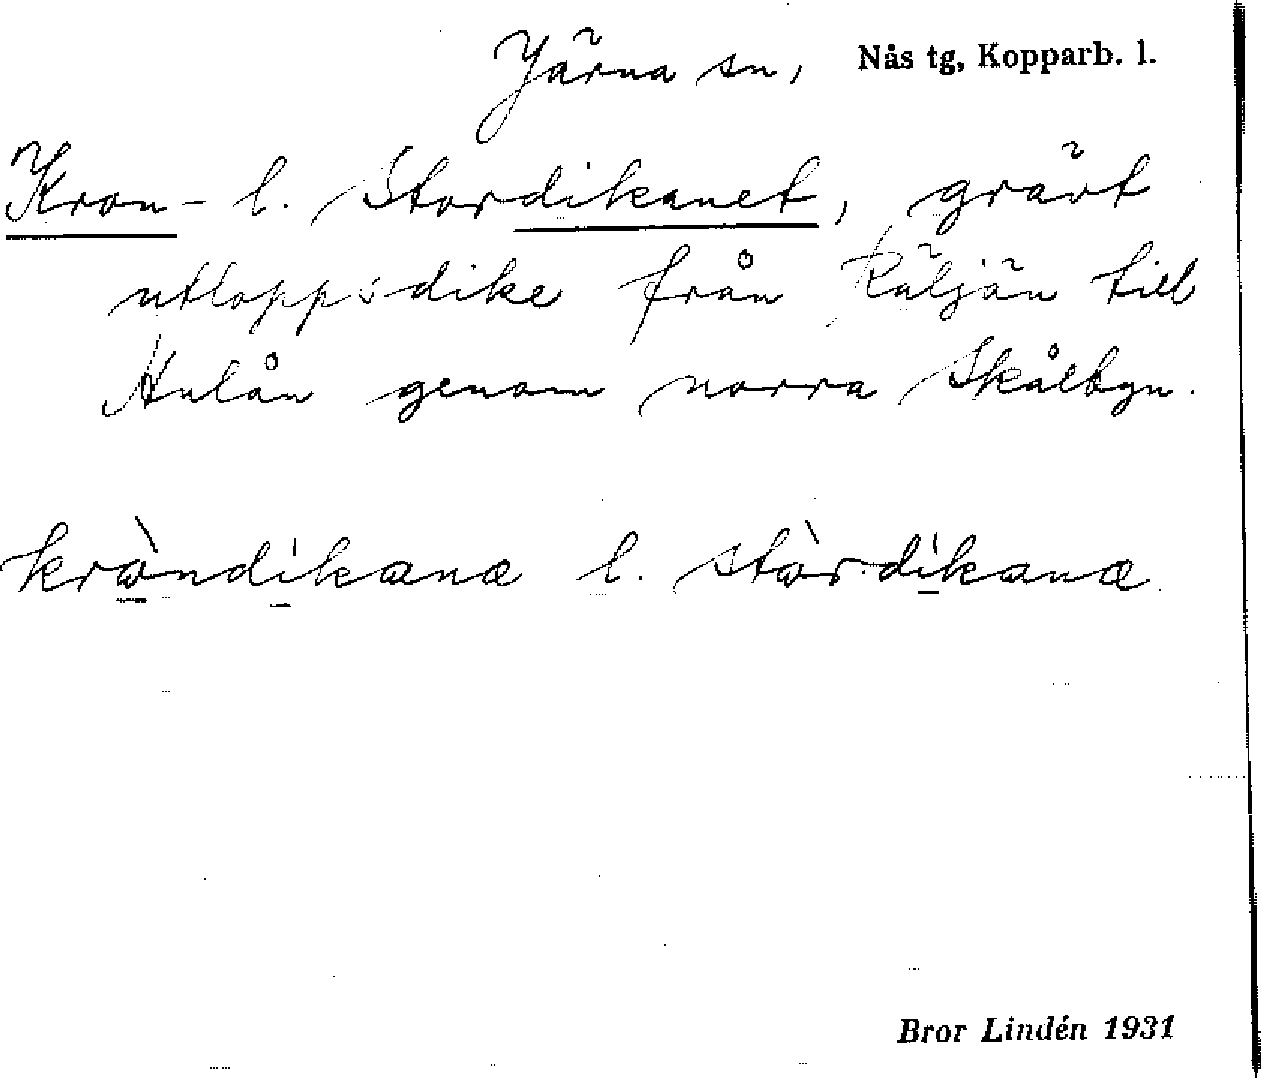 Järna sn, Nås tg, Kopparb. l.
Kron- l. Stordikanet, grävt
utloppsdike från Räljän till
Hulån genom norra Skålbyn.
kròndikanæ l. stòrdikanæ
Bror Lindén 1931